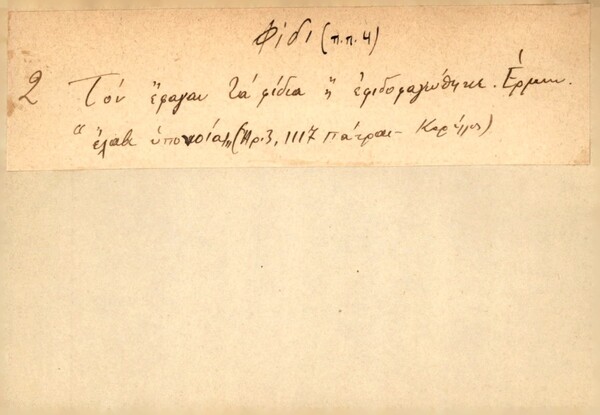 Φίδι (π.π. 4)
2 Τόν ἔφαγαν τά φίδια ἤ ἐφιδοφαγώθηκε. Ἑρμην.
"ἔλαβε ὑποψίας" (Ἀρ. 3, 1117 Πάτραι -